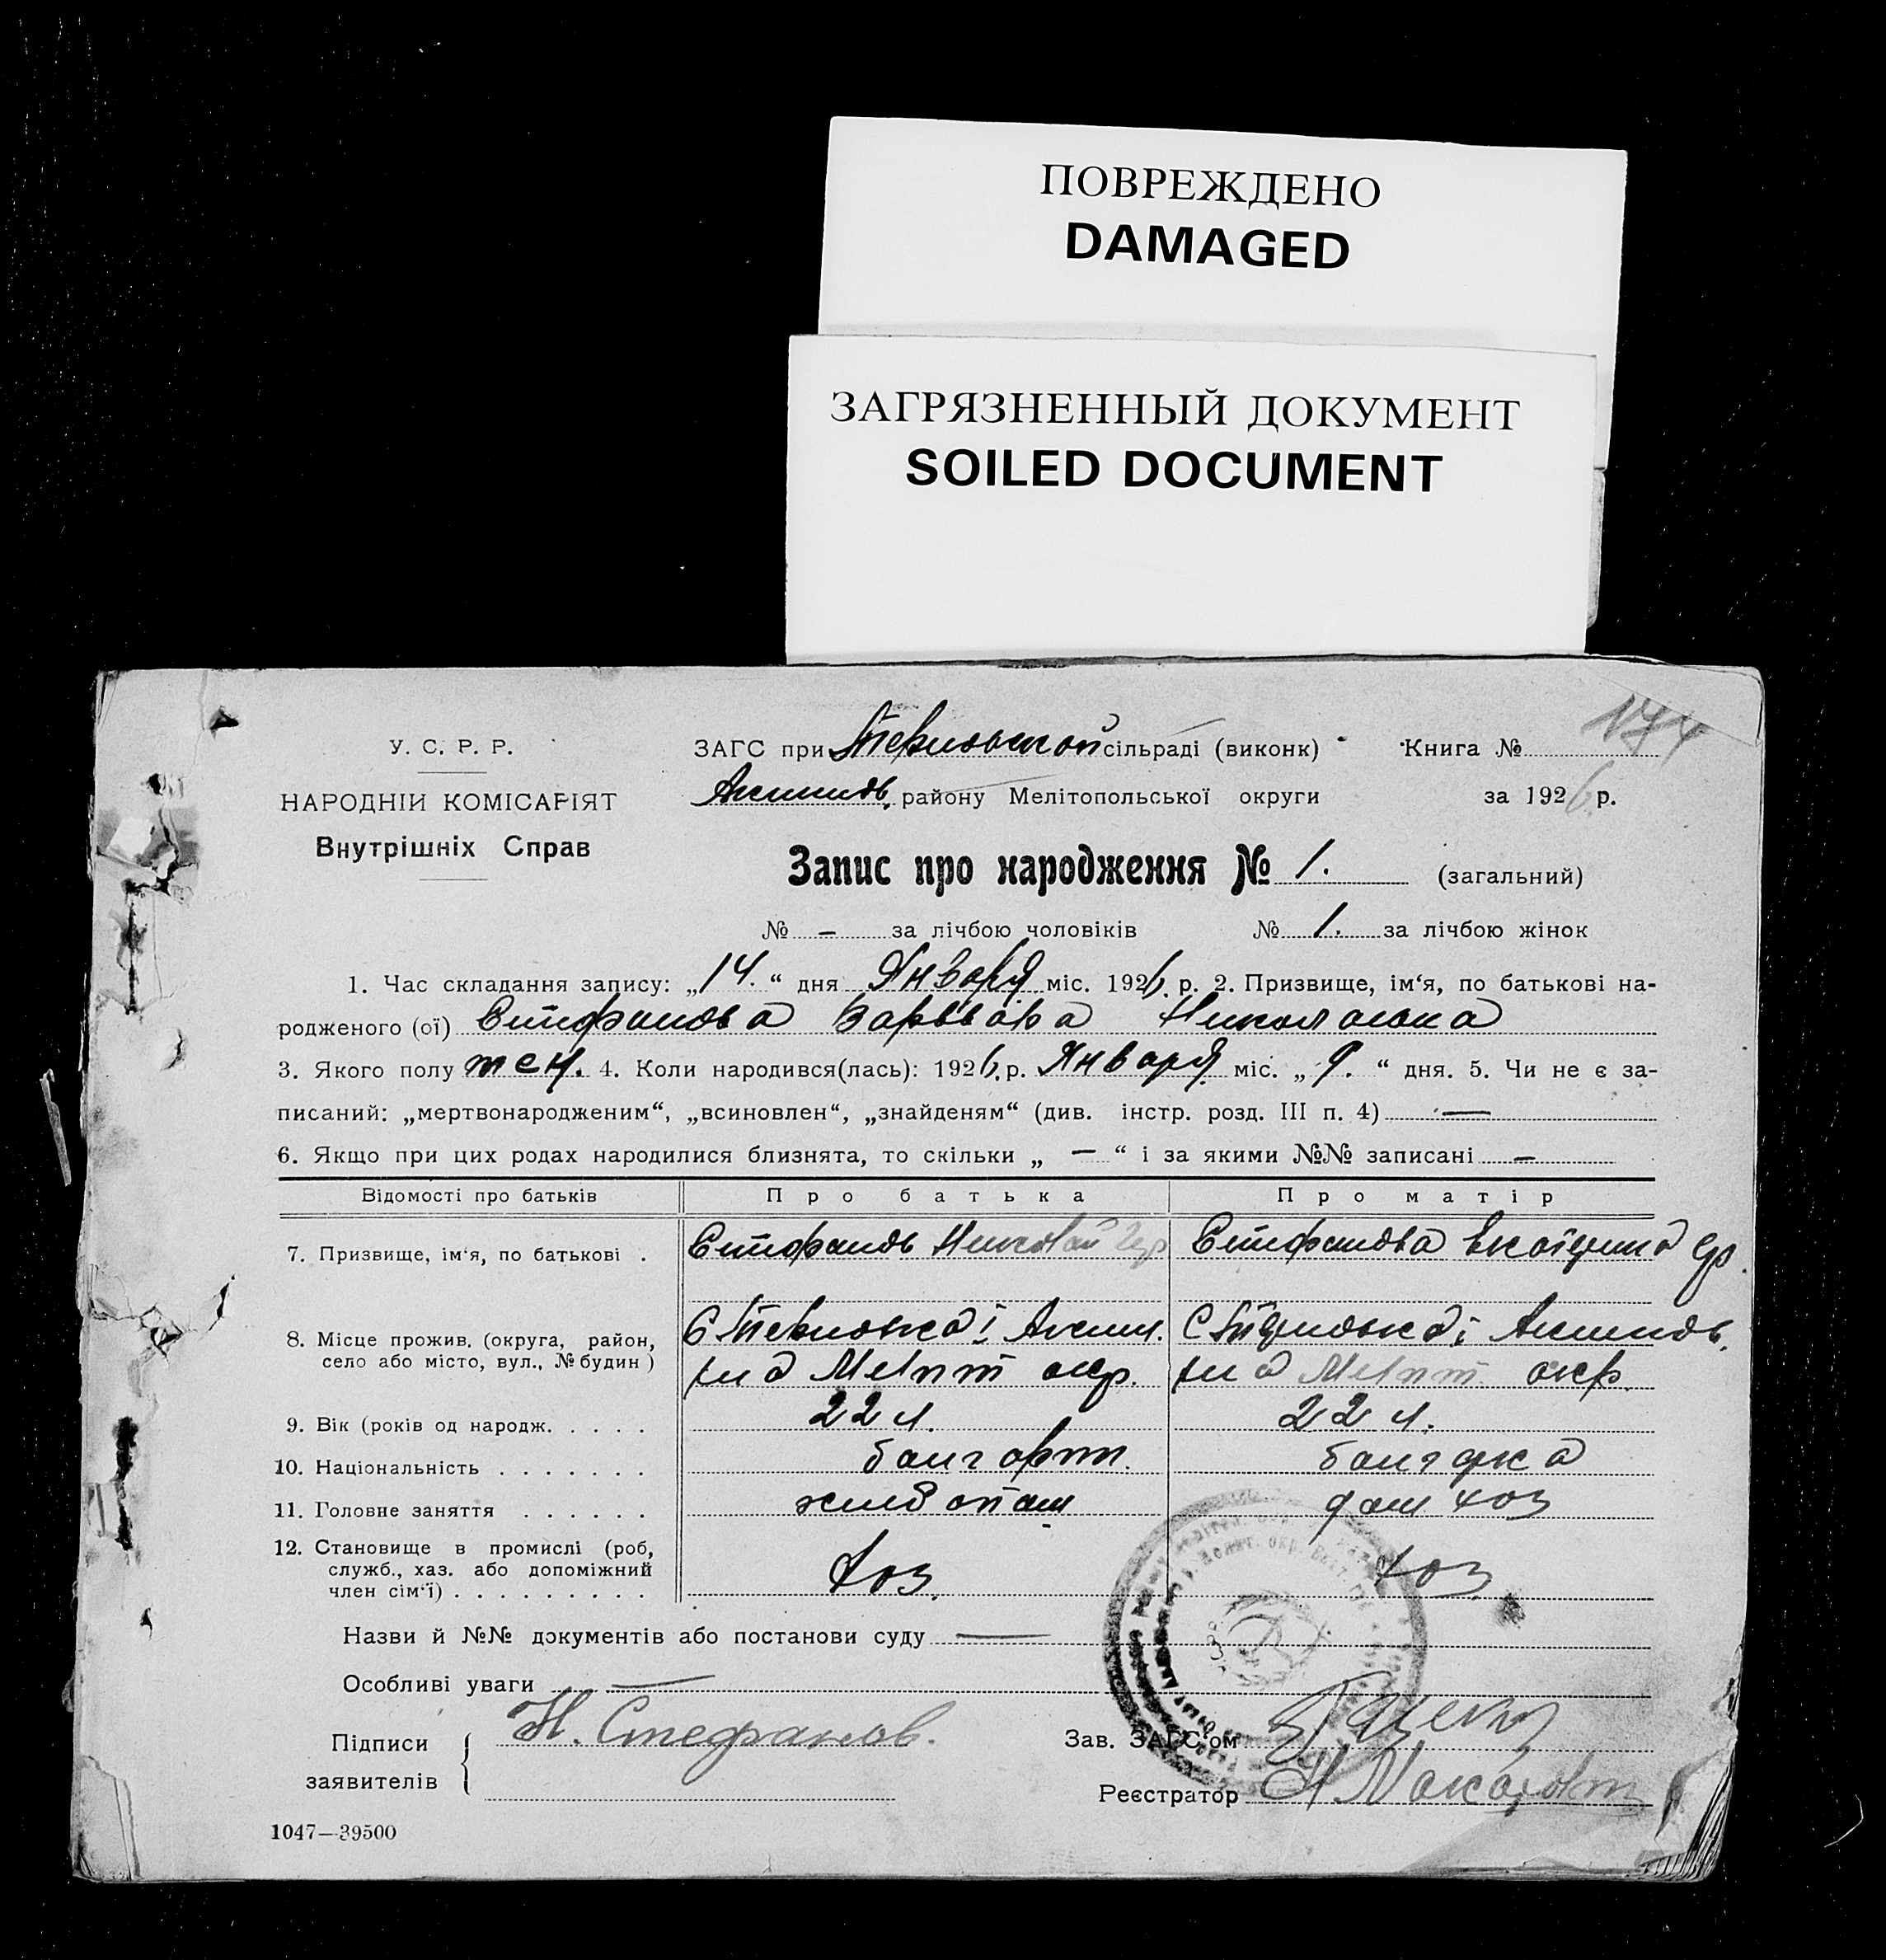 ПОВРЕЖДЕНО
DAMAGED
ЗАГРЯЗНЕННЫЙ ДОКУМЕНТ
SOILED DOCUMENT
174
У. С. Р. Р.
НАРОДНІЙ КОМІСАРІЯТ
Внутрішніх Справ
ЗАГС при сільраді (виконк) Книга №
Акимов. району Мелітопольської округи за 1926 р.
Запис про народження № 1. (загальний)
№ — за лічбою чоловіків № 1. за лічбою жінок
1. Час складання запису: „14.“ дня Января міс. 1926. р. 2. Призвище, ім‘я, по батькові на-
родженого (ої) Стефанова Варвара Николаевна
3. Якого полу жен. 4. Коли народився(лась): 1926. р. Января міс. „9.“ дня. 5. Чи не є за-
писаний: „мертвонародженим“, „всиновлен“, „знайденям“ (див. інстр. розд. III п. 4) —
6. Якщо при цих родах народилися близнята, то скільки „ — “ і за якими №№ записані —
Відомості про батьків Про батька Про матір
7. Призвище, ім‘я, по батькові . Стефанов Николай Стефанова Екатерина
8. Місце прожив. (округа, район, село або місто, вул., № будин ) С Аким. С Акимов.
Мелит окр. Мелит. окр.
9. Вік (років од народж. . . . . 22 л. 22 л.
10. Національність . . . . . . . болгарин. болгарка
11. Головне заняття . . . . . . хлебопаш дом хоз
12. Становище в промислі (роб, служб., хаз. або допоміжний член сім‘ї) . . . . . . . . . хоз. хоз
Назви й №№ документів або постанови суду —
Особливі уваги —
Підписи заявителів Н. Стефанов.
Зав. ЗАГС‘ом
Реєстратор
1047—39500